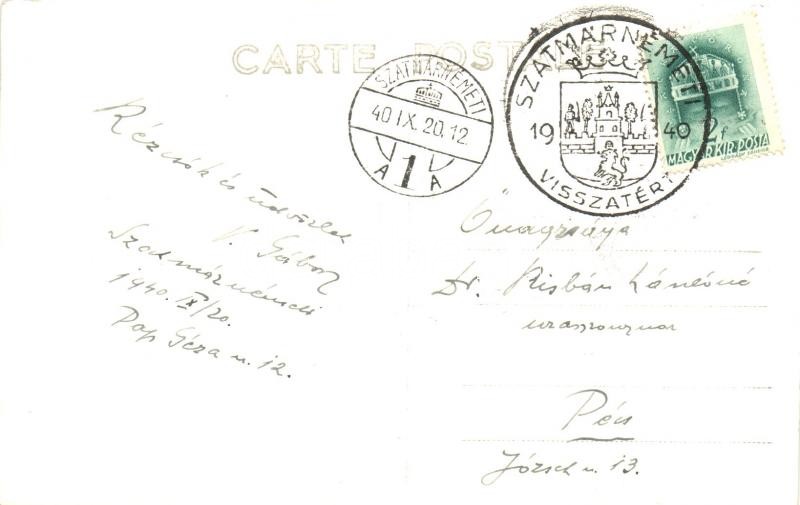 CARTE POSTALE
SZATMÁRNÉMETI
40 IX. 20. 12
A 1 A
SZATMÁRNÉMETI
19 40
VISSZATÉRT
2f
MAGYAR KIR. POSTA
Kézcsók és üdvözlet
V. Gábor
Szatmárnémeti
1940. IX/20.
Pap Géza u. 12.
Őnagysága
Dr. Kisbán Lászlóné
úrasszonynak
Pécs
József u. 13.